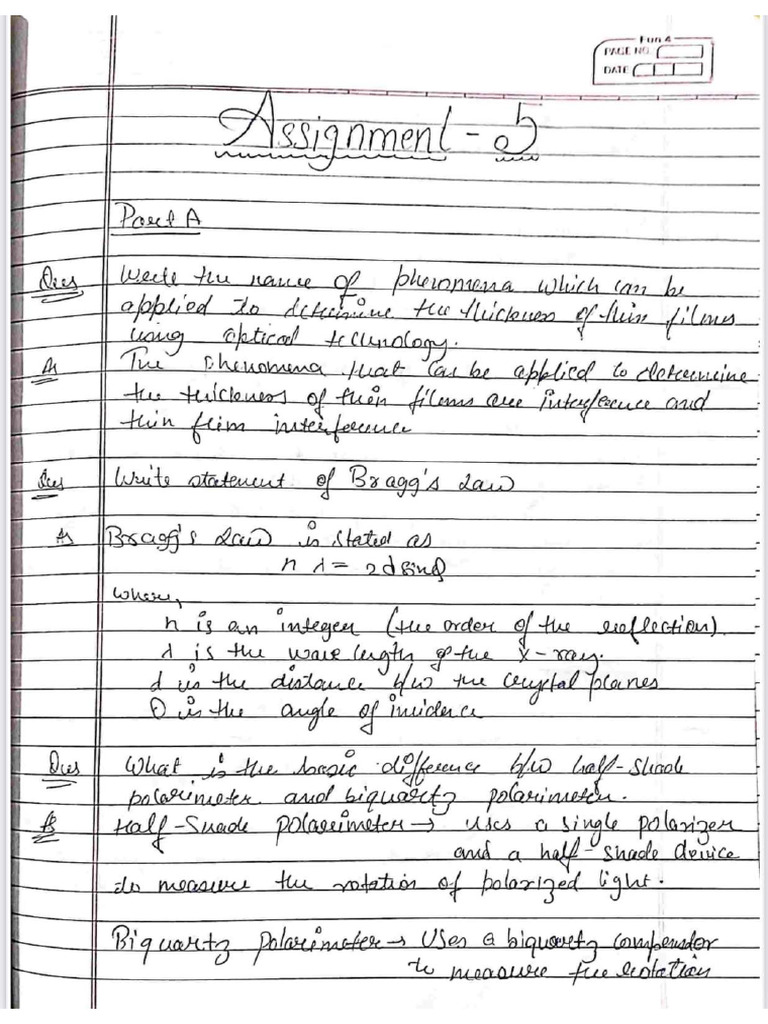 Fun 4
PAGE NO.
DATE
Assignment - 5
Part A
Ques Write the name of phenomena which can be
applied to determine the thickness of thin films
using optical technology.
A The Phenomena that can be applied to determine
the thickness of thin films are interference and
thin film interference
Ques Write statement of Bragg's Law
A Bragg's Law is stated as
n λ = 2d sinθ
where,
n is an integer (the order of the reflection).
λ is the wave length of the X-ray.
d is the distance b/w the crystal planes
θ is the angle of incidence
Ques What is the basic difference b/w half-shade
polarimeter and biquartz polarimeter.
A Half-Shade Polarimeter → Uses a single polarizer
and a half-shade device
to measure the rotation of polarized light.
Biquartz Polarimeter → Uses a biquartz
to measure the rotation